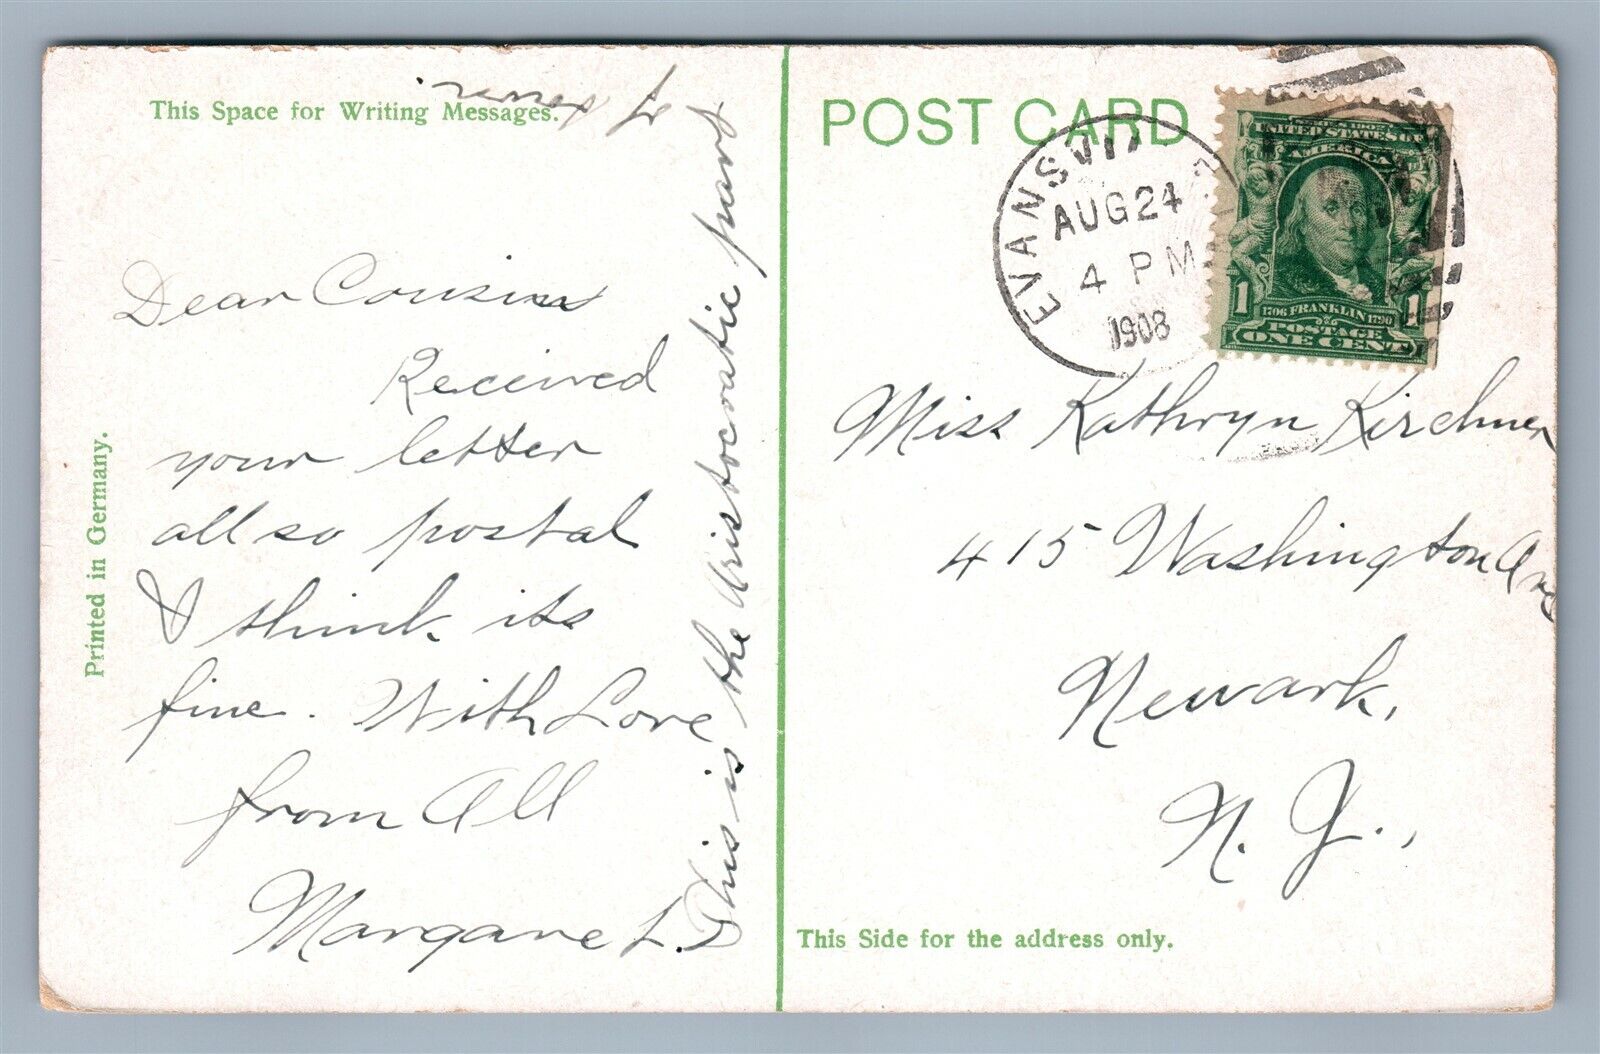 This Space for Writing Messages.
Dear Cousin
Received
your letter
all so postal
& think its
fine. With Love
from All
Margaret.
This is the Aristocratic part
of town
Printed in Germany.
POST CARD
EVANSVI
AUG 24
4 PM
1908
SERIES 1902
UNITED STATES OF
AMERICA
1 1
1706 FRANKLIN 1790
POSTAGE
ONE CENT
Miss Kathryn Kirchner
415 Washington Ave
Newark,
N. J.,
This Side for the address only.